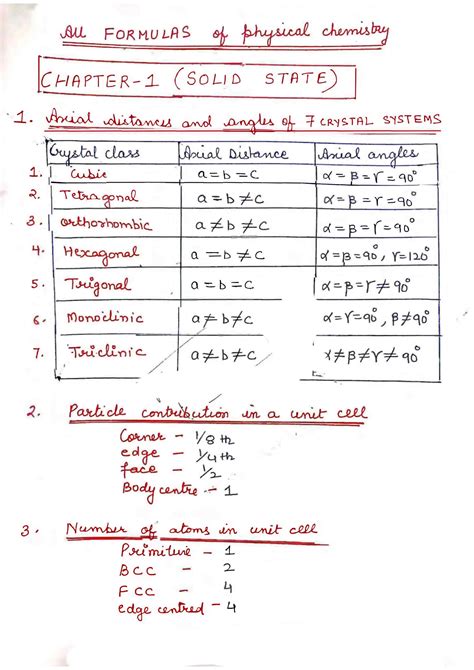 All FORMULAS of physical chemistry
CHAPTER-1 (SOLID STATE)
1. Axial distances and angles of 7 CRYSTAL SYSTEMS
Crystal class Axial Distance Axial angles
1. Cubic a = b = c α = β = γ = 90°
2. Tetragonal a = b ≠ c α = β = γ = 90°
3. orthorhombic a ≠ b ≠ c α = β = γ = 90°
4. Hexagonal a = b ≠ c α = β = 90°, γ = 120°
5. Trigonal a = b = c α = β = γ ≠ 90°
6. Monoclinic a ≠ b ≠ c α = γ = 90°, β ≠ 90°
7. Triclinic a ≠ b ≠ c α ≠ β ≠ γ ≠ 90°
2. Particle contribution in a unit cell
Corner - 1/8 th
edge - 1/4 th
face - 1/2
Body centre - 1
3. Number of atoms in unit cell
Primitive - 1
BCC - 2
FCC - 4
edge centred - 4